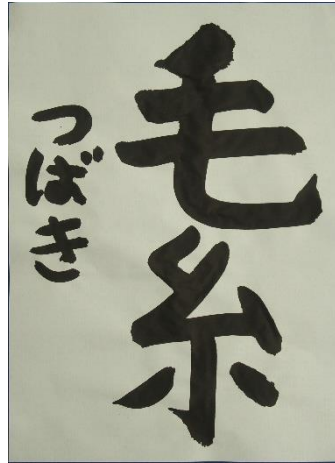 毛糸
つばき